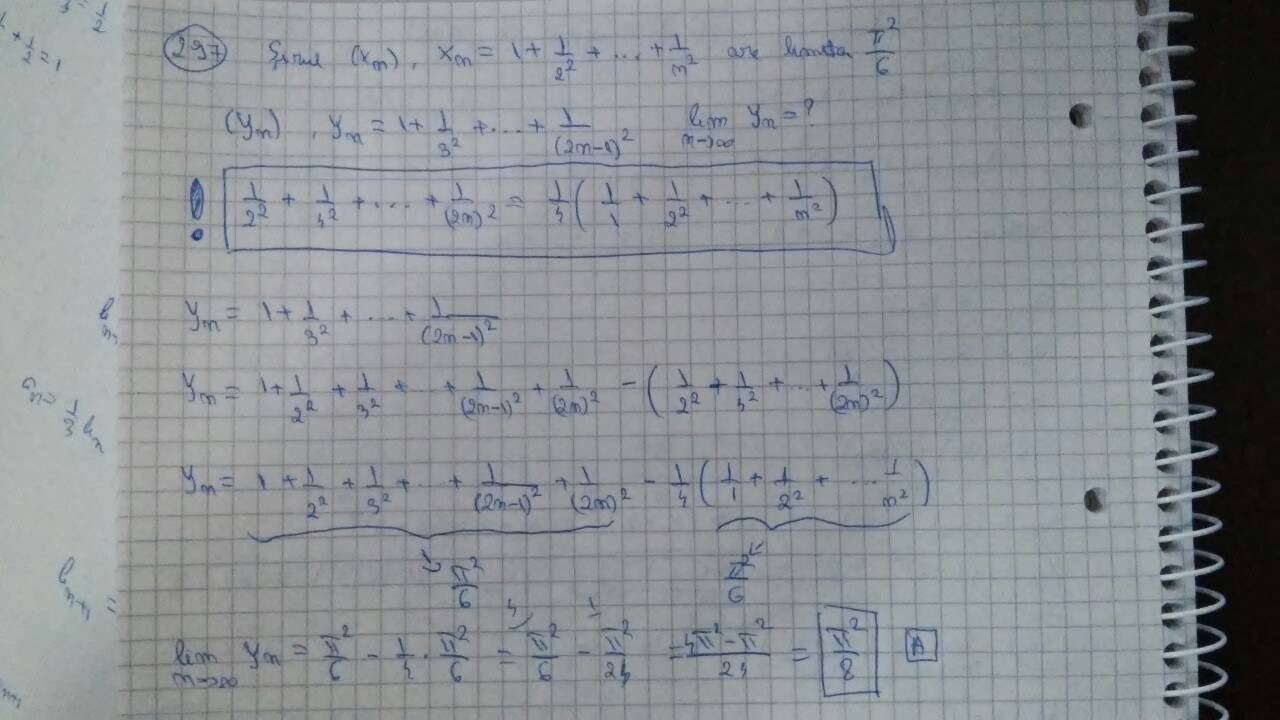 297 Șirul (xn), xn = 1 + 1/2² + ... + 1/n² are limita π²/6
(yn), yn = 1 + 1/3² + ... + 1/(2n-1)² lim n→∞ yn = ?
! 1/2² + 1/4² + ... + 1/(2n)² = 1/4 (1/1 + 1/2² + ... + 1/n²)
yn = 1 + 1/3² + ... + 1/(2n-1)²
yn = 1 + 1/2² + 1/3² + ... + 1/(2n-1)² + 1/(2n)² - (1/2² + 1/4² + ... + 1/(2n)²)
yn = 1 + 1/2² + 1/3² + ... + 1/(2n-1)² + 1/(2n)² - 1/4 (1/1 + 1/2² + ... 1/n²)
↓ π²/6 π²/6
lim n→∞ yn = π²/6 - 1/4 · π²/6 = 4) π²/6 - 1) π²/24 = 4π² - π²/24 = π²/8 A